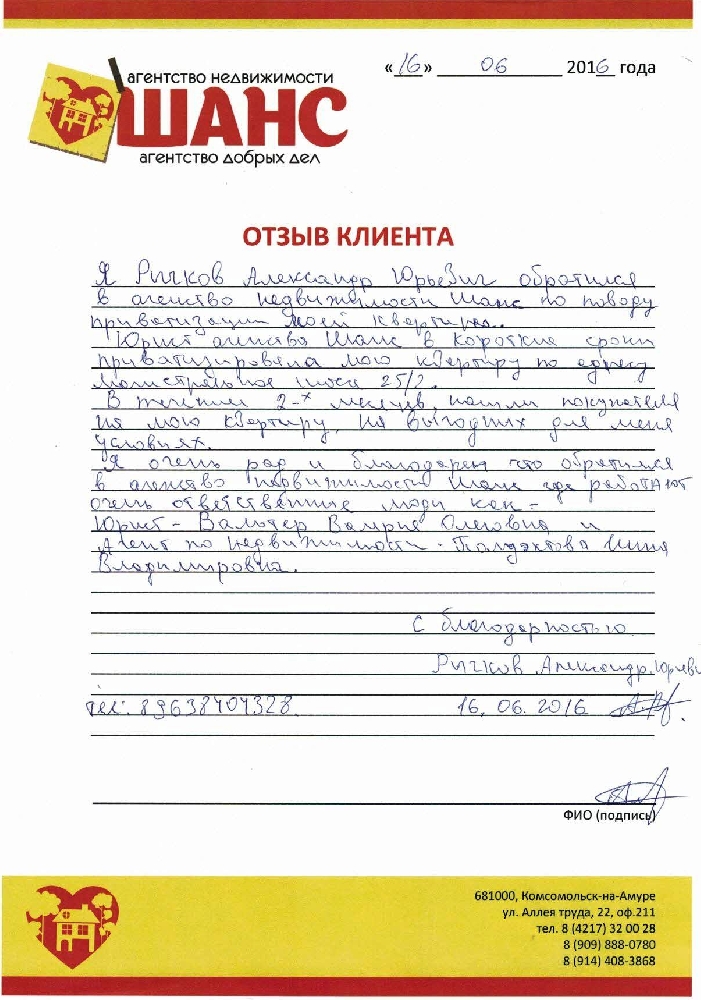 «16» 06 2016 года
агентство недвижимости
ШАНС
агентство добрых дел
ОТЗЫВ КЛИЕНТА
Я Рычков Александр Юрьевич обратился
в агенство недвижимости Шанс по поводу
приватизации моей квартиры.
Юрист агенства Шанс в короткие сроки
приватизировала мою квартиру по адресу
Магистральное шоссе 25/2.
В течении 2-х месяцев, нашли покупателя
на мою квартиру, на выгодных для меня
условиях.
Я очень рад и благодарен что обратился
в агенство недвижимости Шанс где работают
очень ответственные люди как -
Юрист - Вальтер Валерия Олеговна и
Агент по недвижимости - Инна
Владимировна.
С благодарностью
Рычков Александр Юрьеви
тел: 89638404328 16.06.2016
ФИО (подпись)
681000, Комсомольск-на-Амуре
ул. Аллея труда, 22, оф.211
тел. 8 (4217) 32 00 28
8 (909) 888-0780
8 (914) 408-3868